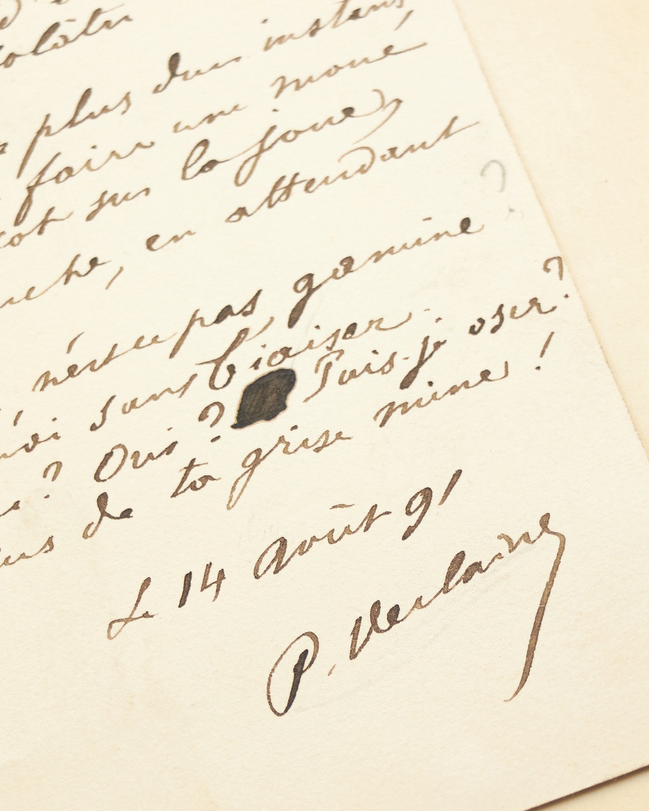 plus d'un instant,
faire une moue
sur la joue,
en attendant
?
n'est ce pas gamine
sans biaiser
? Oui? Puis-je oser?
de ta grise mine!
Le 14 Août 91
P. Verlaine